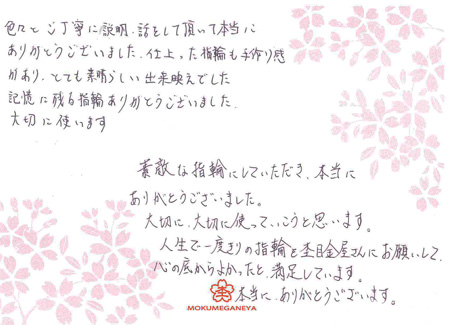 色々とご丁寧に説明、話をして頂いて本当に
ありがとうございました。仕上った指輪も手作り感
があり、とても素晴らしい出来映えでした
記憶に残る指輪ありがとうございました。
大切に使います
素敵な指輪にしていただき、本当に
ありがとうございました。
大切に、大切に使っていこうと思います。
人生で一度きりの指輪を杢目金屋さんにお願いして、
心の底からよかったと、満足しています。
本当に、ありがとうございます。
MOKUMEGANEYA